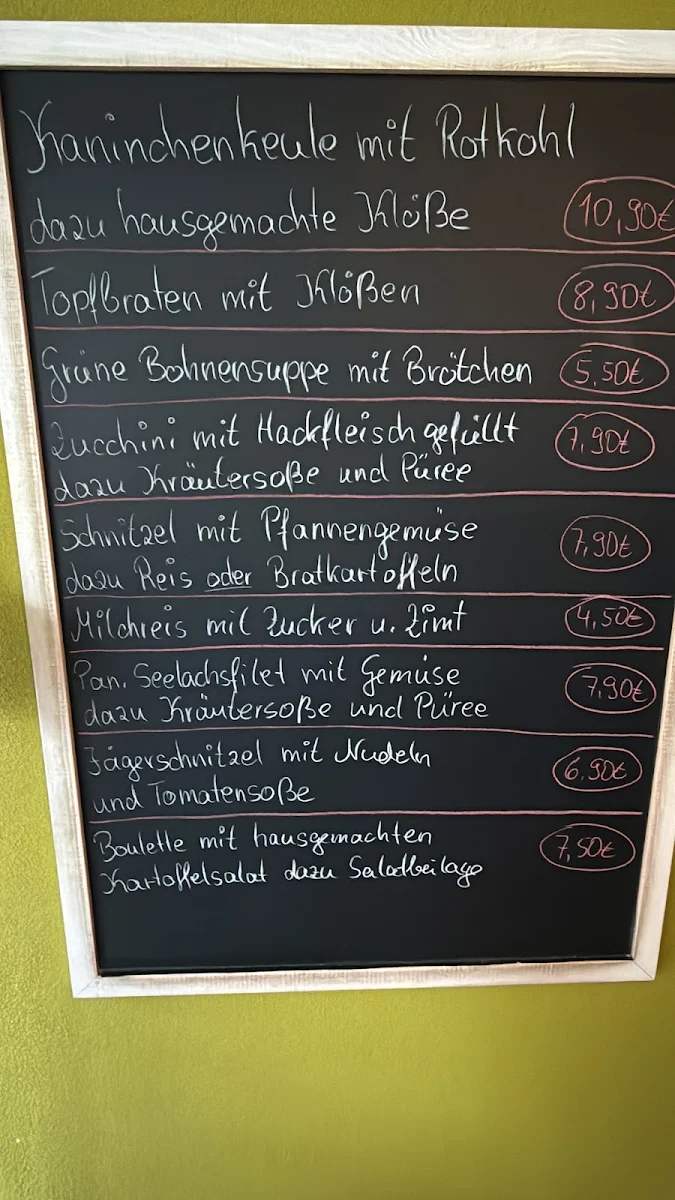 Kaninchenkeule mit Rotkohl
dazu hausgemachte Klöße 10,90€
Topfbraten mit Klößen 8,90€
Grüne Bohnensuppe mit Brötchen 5,50€
Zucchini mit Hackfleisch gefüllt 7,90€
dazu Kräutersoße und Püree
Schnitzel mit Pfannengemüse 7,90€
dazu Reis oder Bratkartoffeln
Milchreis mit Zucker u. Zimt 4,50€
Pan. Seelachsfilet mit Gemüse 7,90€
dazu Kräutersoße und Püree
Jägerschnitzel mit Nudeln 6,90€
und Tomatensoße
Boulette mit hausgemachten 7,50€
Kartoffelsalat dazu Saladbeilage